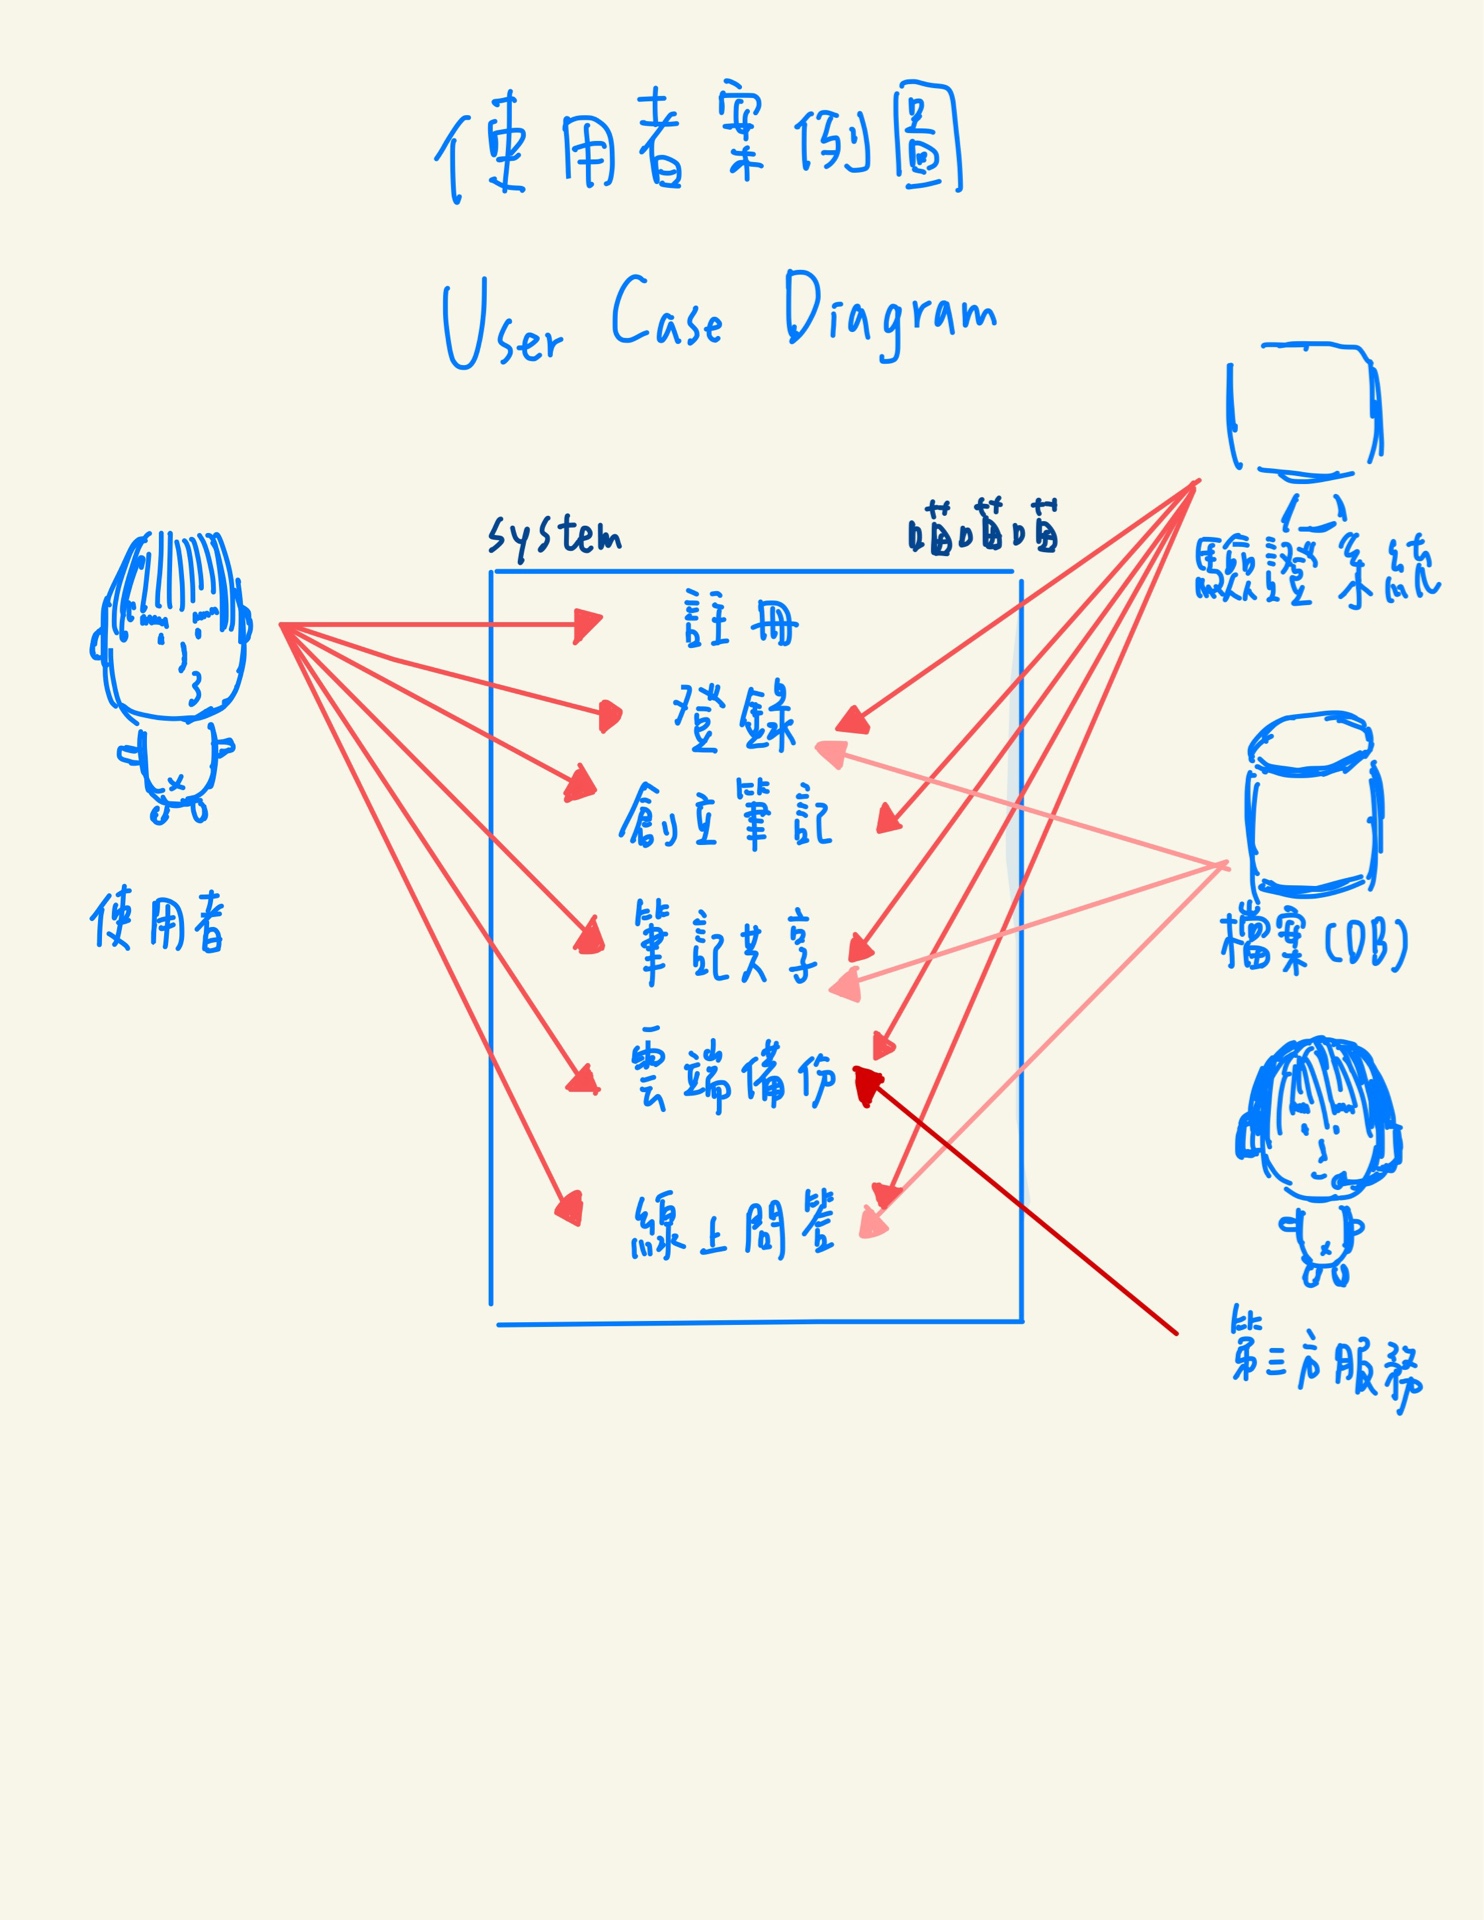 使用者案例圖
User Case Diagram
system
喵喵喵
註冊
登錄
創立筆記
筆記共享
雲端備份
線上問答
使用者
驗證系統
檔案(DB)
第三方服務